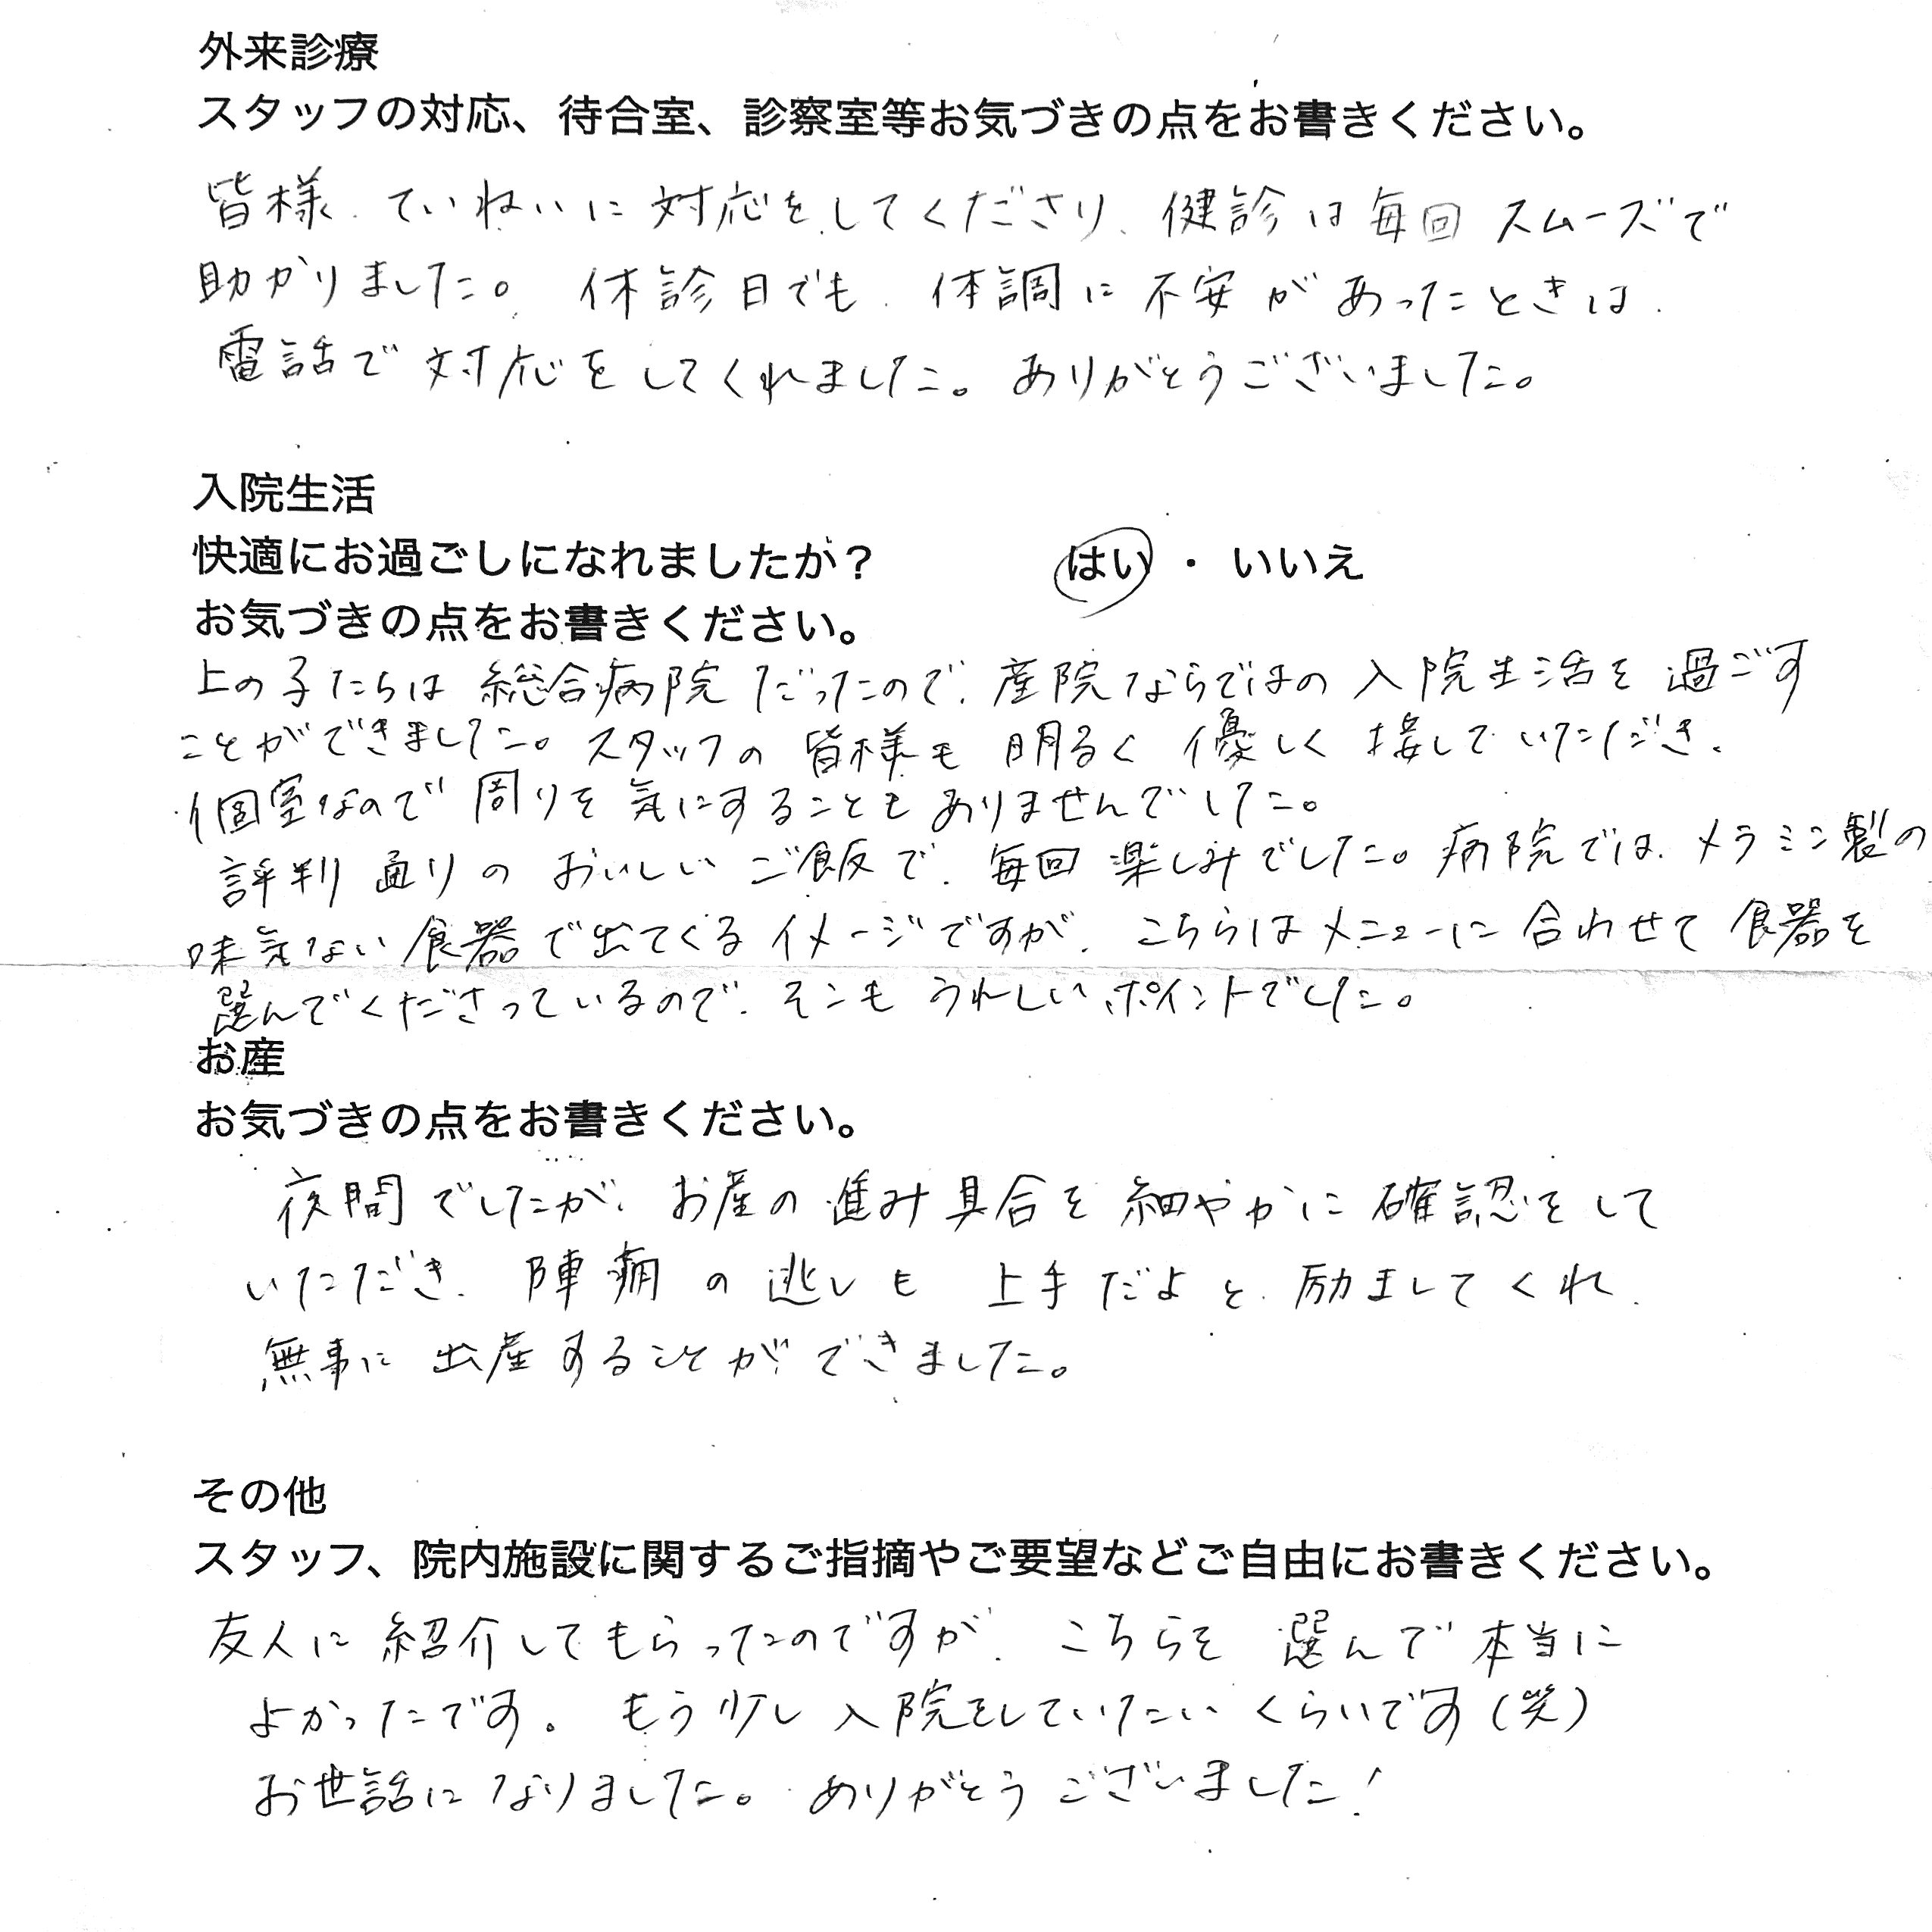 外来診療
スタッフの対応、待合室、診察室等お気づきの点をお書きください。
皆様、ていねいに対応をしてくださり、健診は毎回スムーズで
助かりました。休診日でも、体調に不安があったときは、
電話で対応をしてくれました。ありがとうございました。
入院生活
快適にお過ごしになれましたか？ はい ・ いいえ
お気づきの点をお書きください。
上の子たちは総合病院だったので、産院ならではの入院生活を過ごす
ことができました。スタッフの皆様も明るく優しく接していただき、
個室なので周りを気にすることもありませんでした。
評判通りのおいしいご飯で、毎回楽しみでした。病院では、メラミン製の
味気ない食器で出てくるイメージですが、こちらはメニューに合わせて食器を
選んでくださっているので、そこもうれしいポイントでした。
お産
お気づきの点をお書きください。
夜間でしたが、お産の進み具合を細やかに確認をして
いただき、陣痛の逃しも上手だよと励ましてくれ、
無事に出産することができました。
その他
スタッフ、院内施設に関するご指摘やご要望などご自由にお書きください。
友人に紹介してもらったのですが、こちらを選んで本当に
よかったです。もう少し入院をしていたいくらいです（笑）
お世話になりました。ありがとうございました！